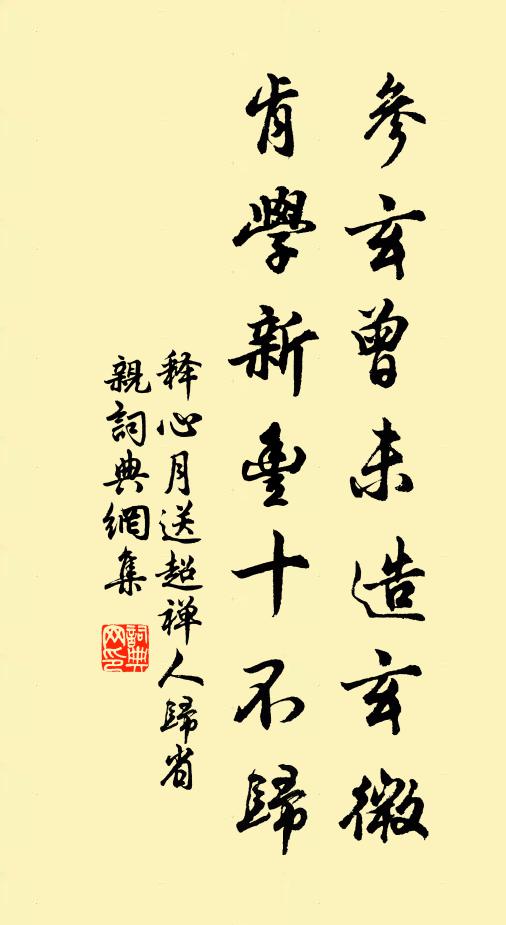 參玄曾未造玄微
肯學新豐十不歸
释心月送超禅人歸省
親詞典網集
詞典網印